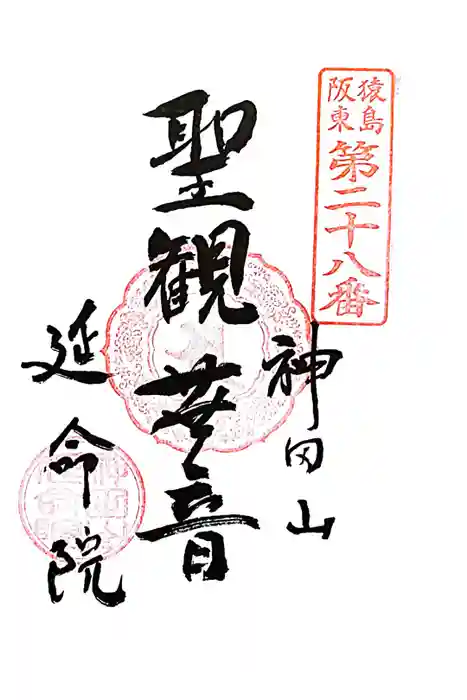 猿島
阪東
第二十八番
神田山
聖観世音
延命院